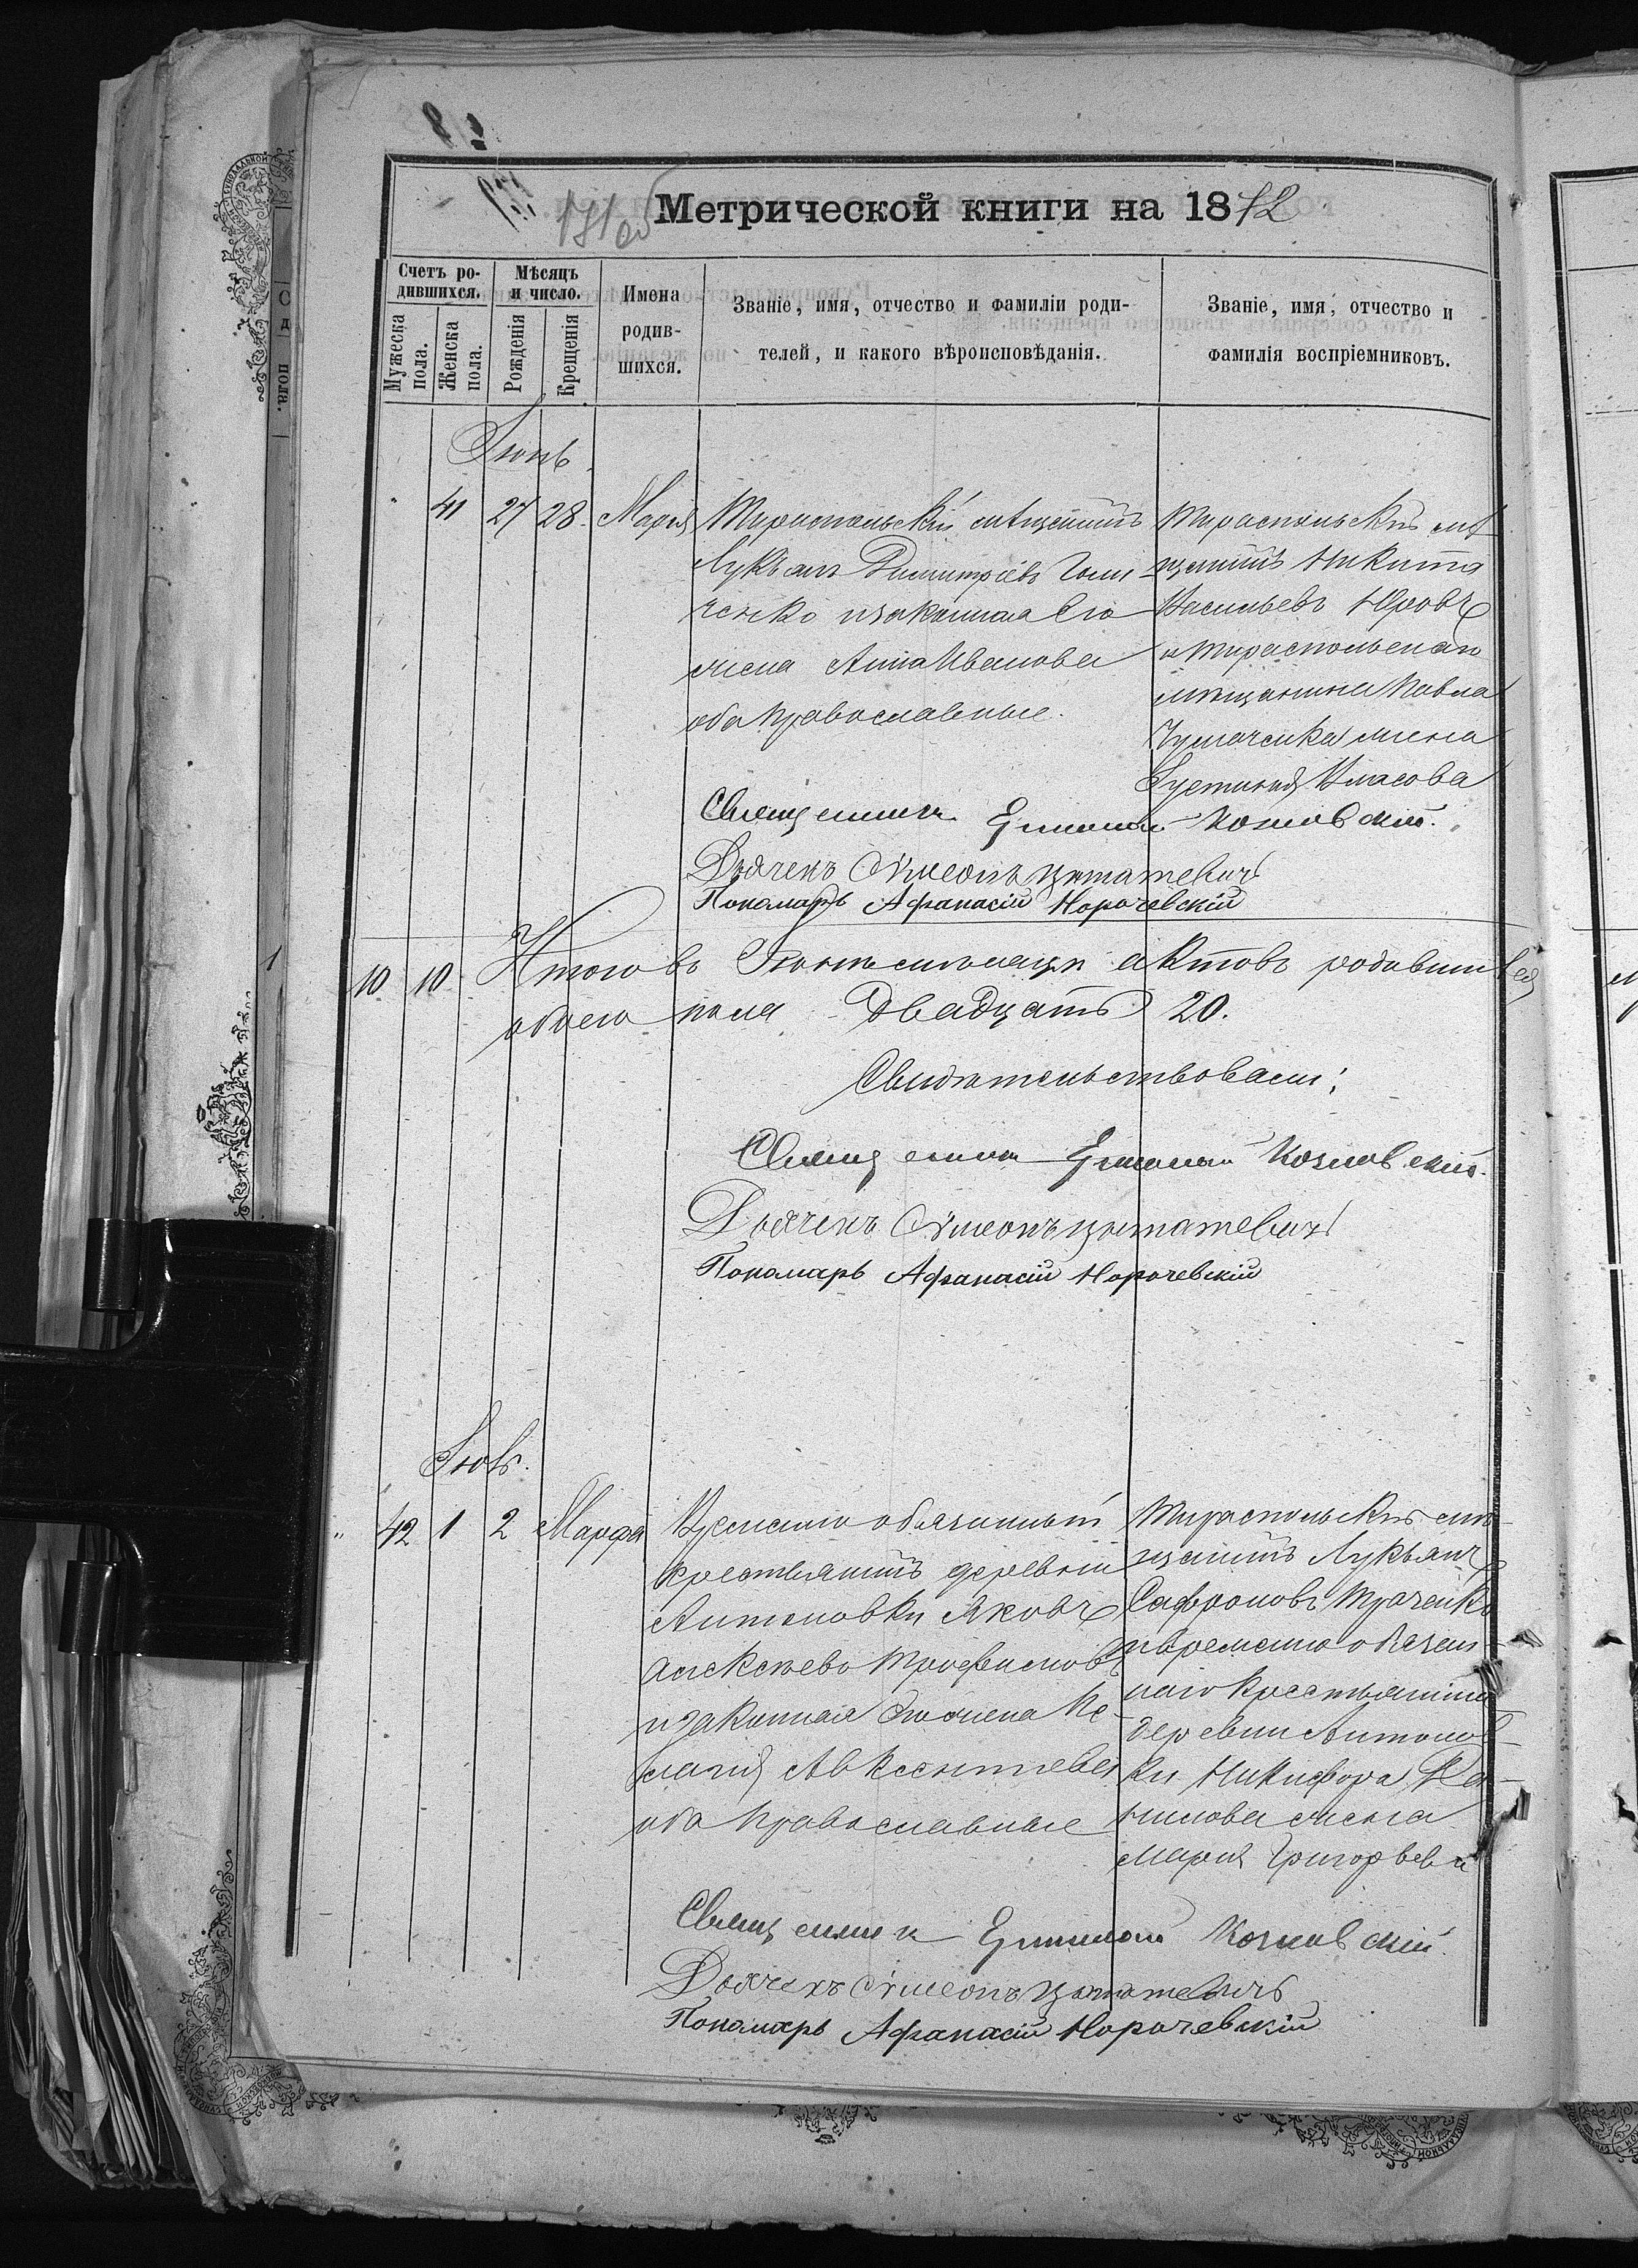 171 об
Метрической книги на 1872
Счетъ ро-
дившихся.
Мѣсяцъ
и число.
Имена
родив-
шихся.
Званіе, имя, отчество и фамиліи роди-
телей, и какого вѣроисповѣданія.
Званіе, имя, отчество и
фамилія воспріемниковъ.
Мужеска
пола.
Женска
пола.
Рожденія
Крещенія
Іюнь.
41 27 28. Марія
Тираспольскій мѣщанинъ
Лукьянъ Димитріевъ
ченко и законная Его
жена Анна Иванова
оба православные.
Тираспольскій мѣ
щанинъ Никита
Васильевъ Юровъ
и тираспольскаго
мѣщанина Павла
Чумаченка жена
Іустинія Власова
Священникъ Козловскій.
Дьячекъ Симеонъ
Пономарь Афанасій Норочевскій
10 10 Итого въ Іюнѣ мѣсяцѣ актовъ родившихся
обоего пола двадцать 20.
Свидѣтельствовали:
Священникъ Козловскій.
Дьячекъ Симеонъ
Пономарь Афанасій Норочевскій
Іюль.
" 42 1 2 Марфа
Временно обязанный
крестьянинъ деревни
Антоновки Яковъ
Алексѣевъ Трофимовъ
и законная Его жена Пе-
лагія Авксентіева
оба православные
Тираспольскій мѣ-
щанинъ Лукьянъ
Сафроновъ Траченко
и временно обязан-
наго крестьянина
деревни Антонов-
ки Никифора
жена
Марія Григорьева
Священникъ Козловскій.
Дьячекъ Симеонъ
Пономарь Афанасій Норочевскій